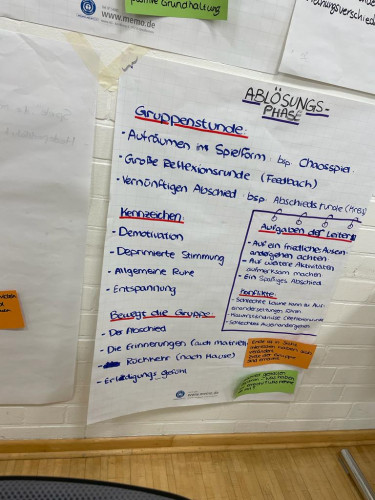 positive Grundhaltung
www.memo.de
ABLÖSUNGS-
PHASE
Gruppenstunde:
- Aufräumen in Spielform: bsp. Chaosspiel.
- Große Reflexionsrunde (Feedback)
- Vernünftigen Abschied: bsp. Abschiedsrunde (Kreis)
Kennzeichen:
- Demotivation
- Deprimierte Stimmung
- Allgemeine Ruhe
- Entspannung
Bewegt die Gruppe:
- Der Abschied
- Die Erinnerungen (auch materielle)
- Rückkehr (nach Hause)
- Erledigungs gefühl
Aufgaben der Leiter:
- Auf ein friedliches Ausein-
andergehen achten
- Auf weitere Aktivitäten
aufmerksam machen
- Ein Spaßiges Abschied
Konflikte:
- Schlechte Laune kann zu Aus-
einandersetzungen führen
- Schlechtes Auseinandergehen
www.memo.de